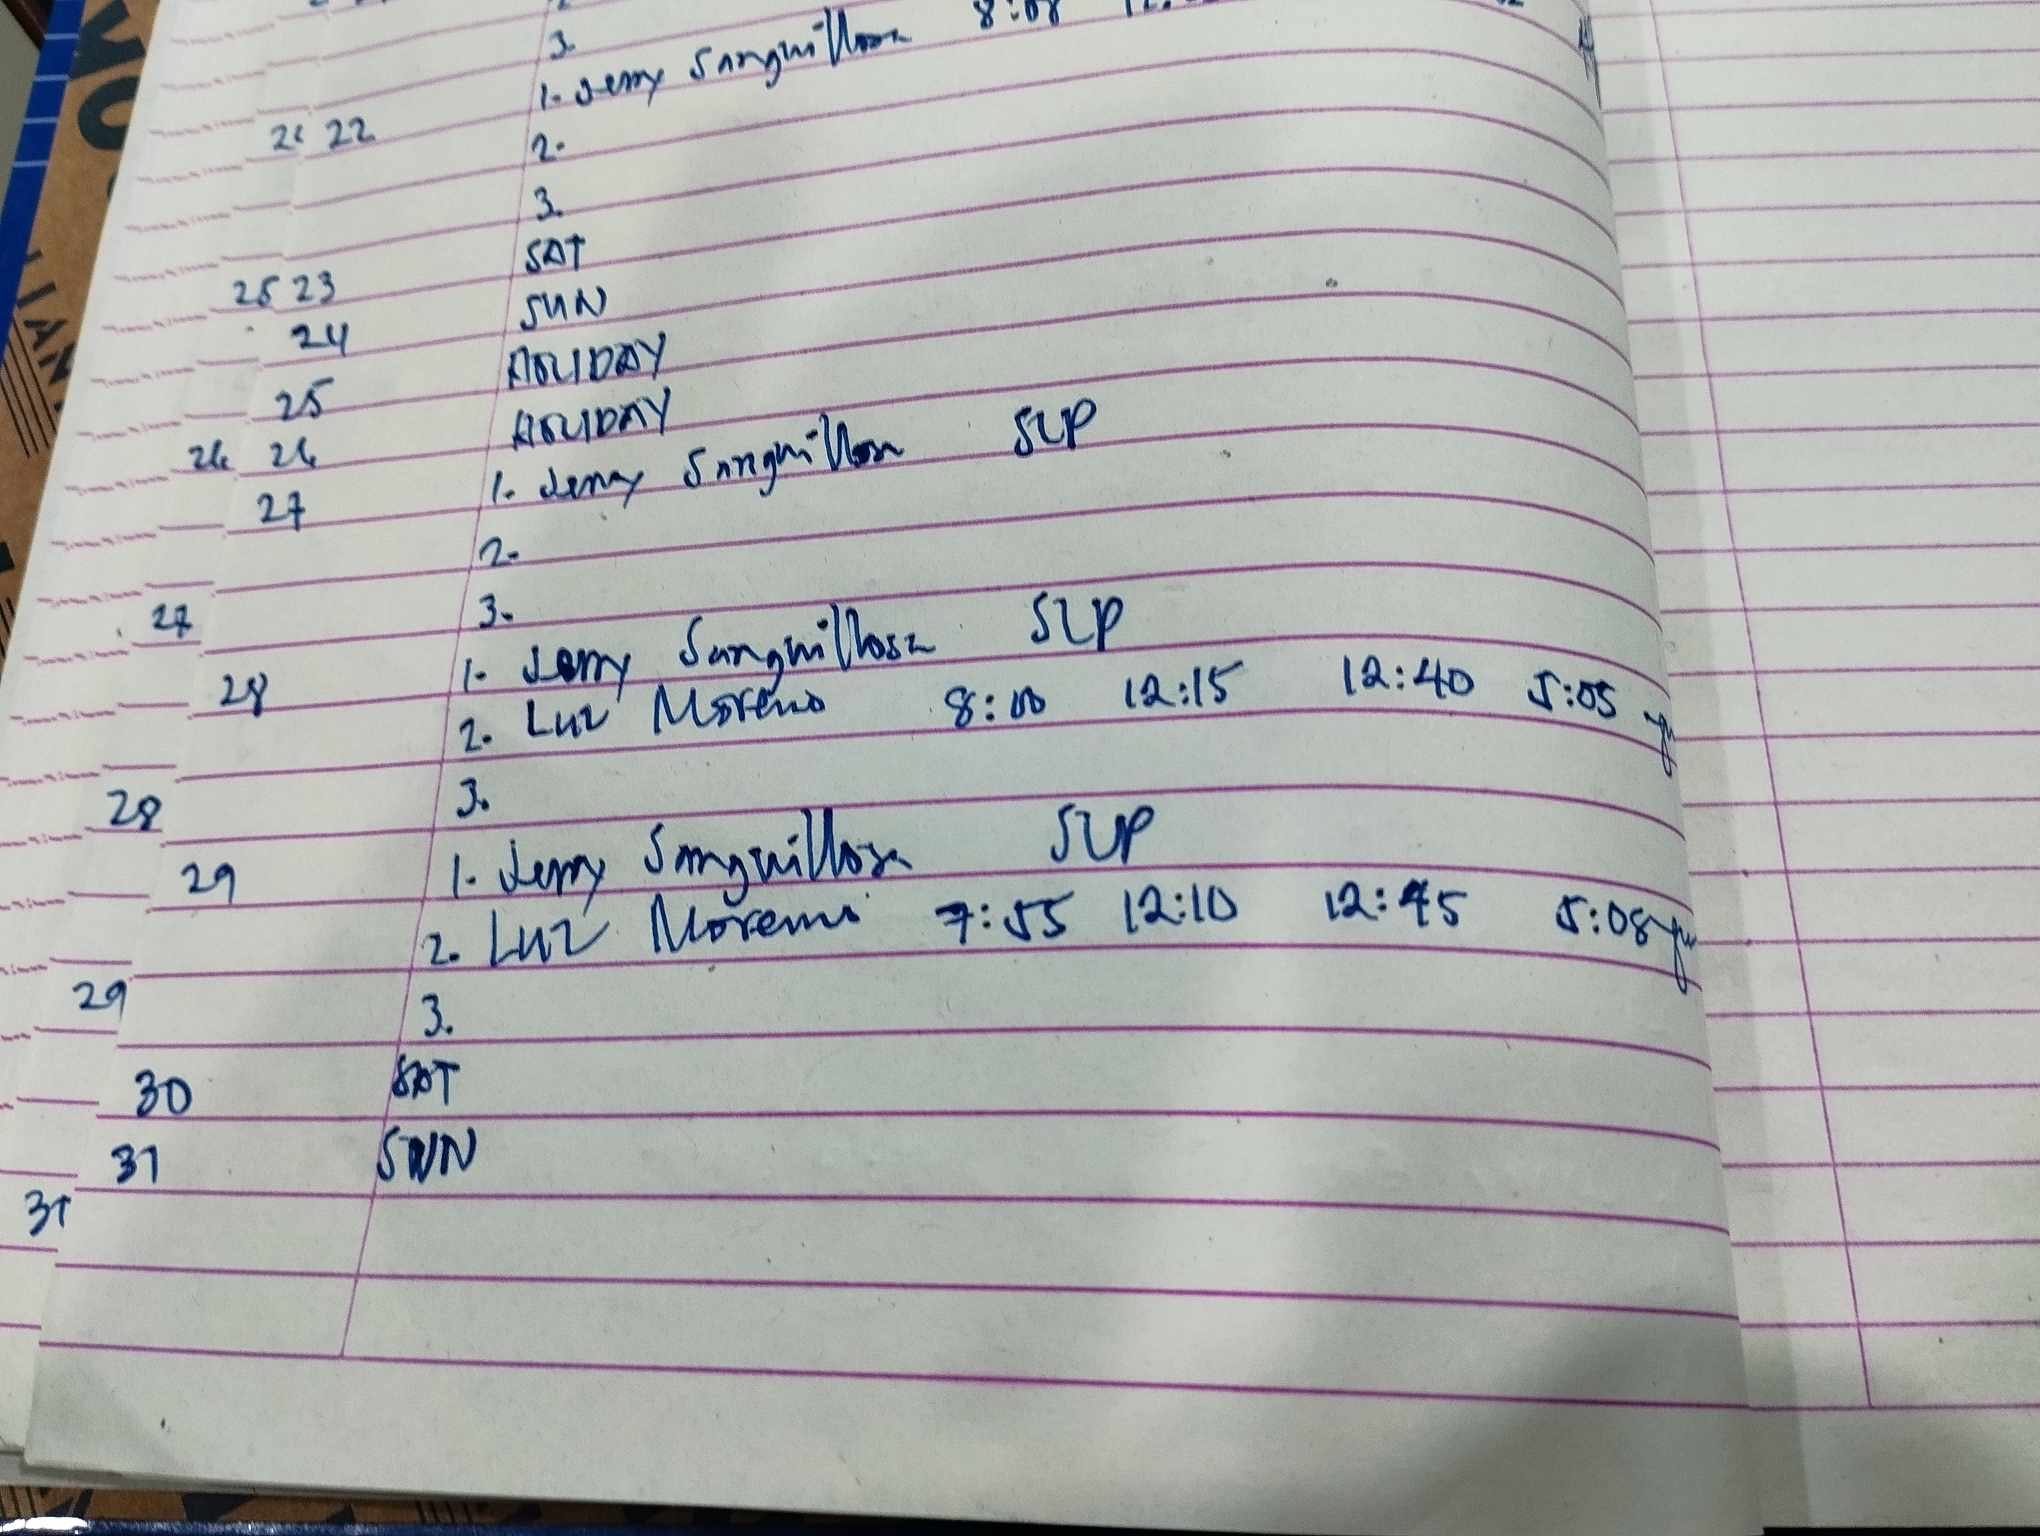 3.
22 1. Jerry Sanguillosa 8:08
2.
3.
23 SAT
24 SUN
25 HOLIDAY
26 HOLIDAY
27 1. Jerry Sanguillosa SLP
2.
3.
28 1. Jerry Sanguillosa SLP
2. Luz Moreno 8:00 12:15 12:40 5:05
3.
29 1. Jerry Sanguillosa SLP
2. Luz Moreno 7:55 12:10 12:45 5:08
3.
30 SAT
31 SUN
25
26
27
28
29
31